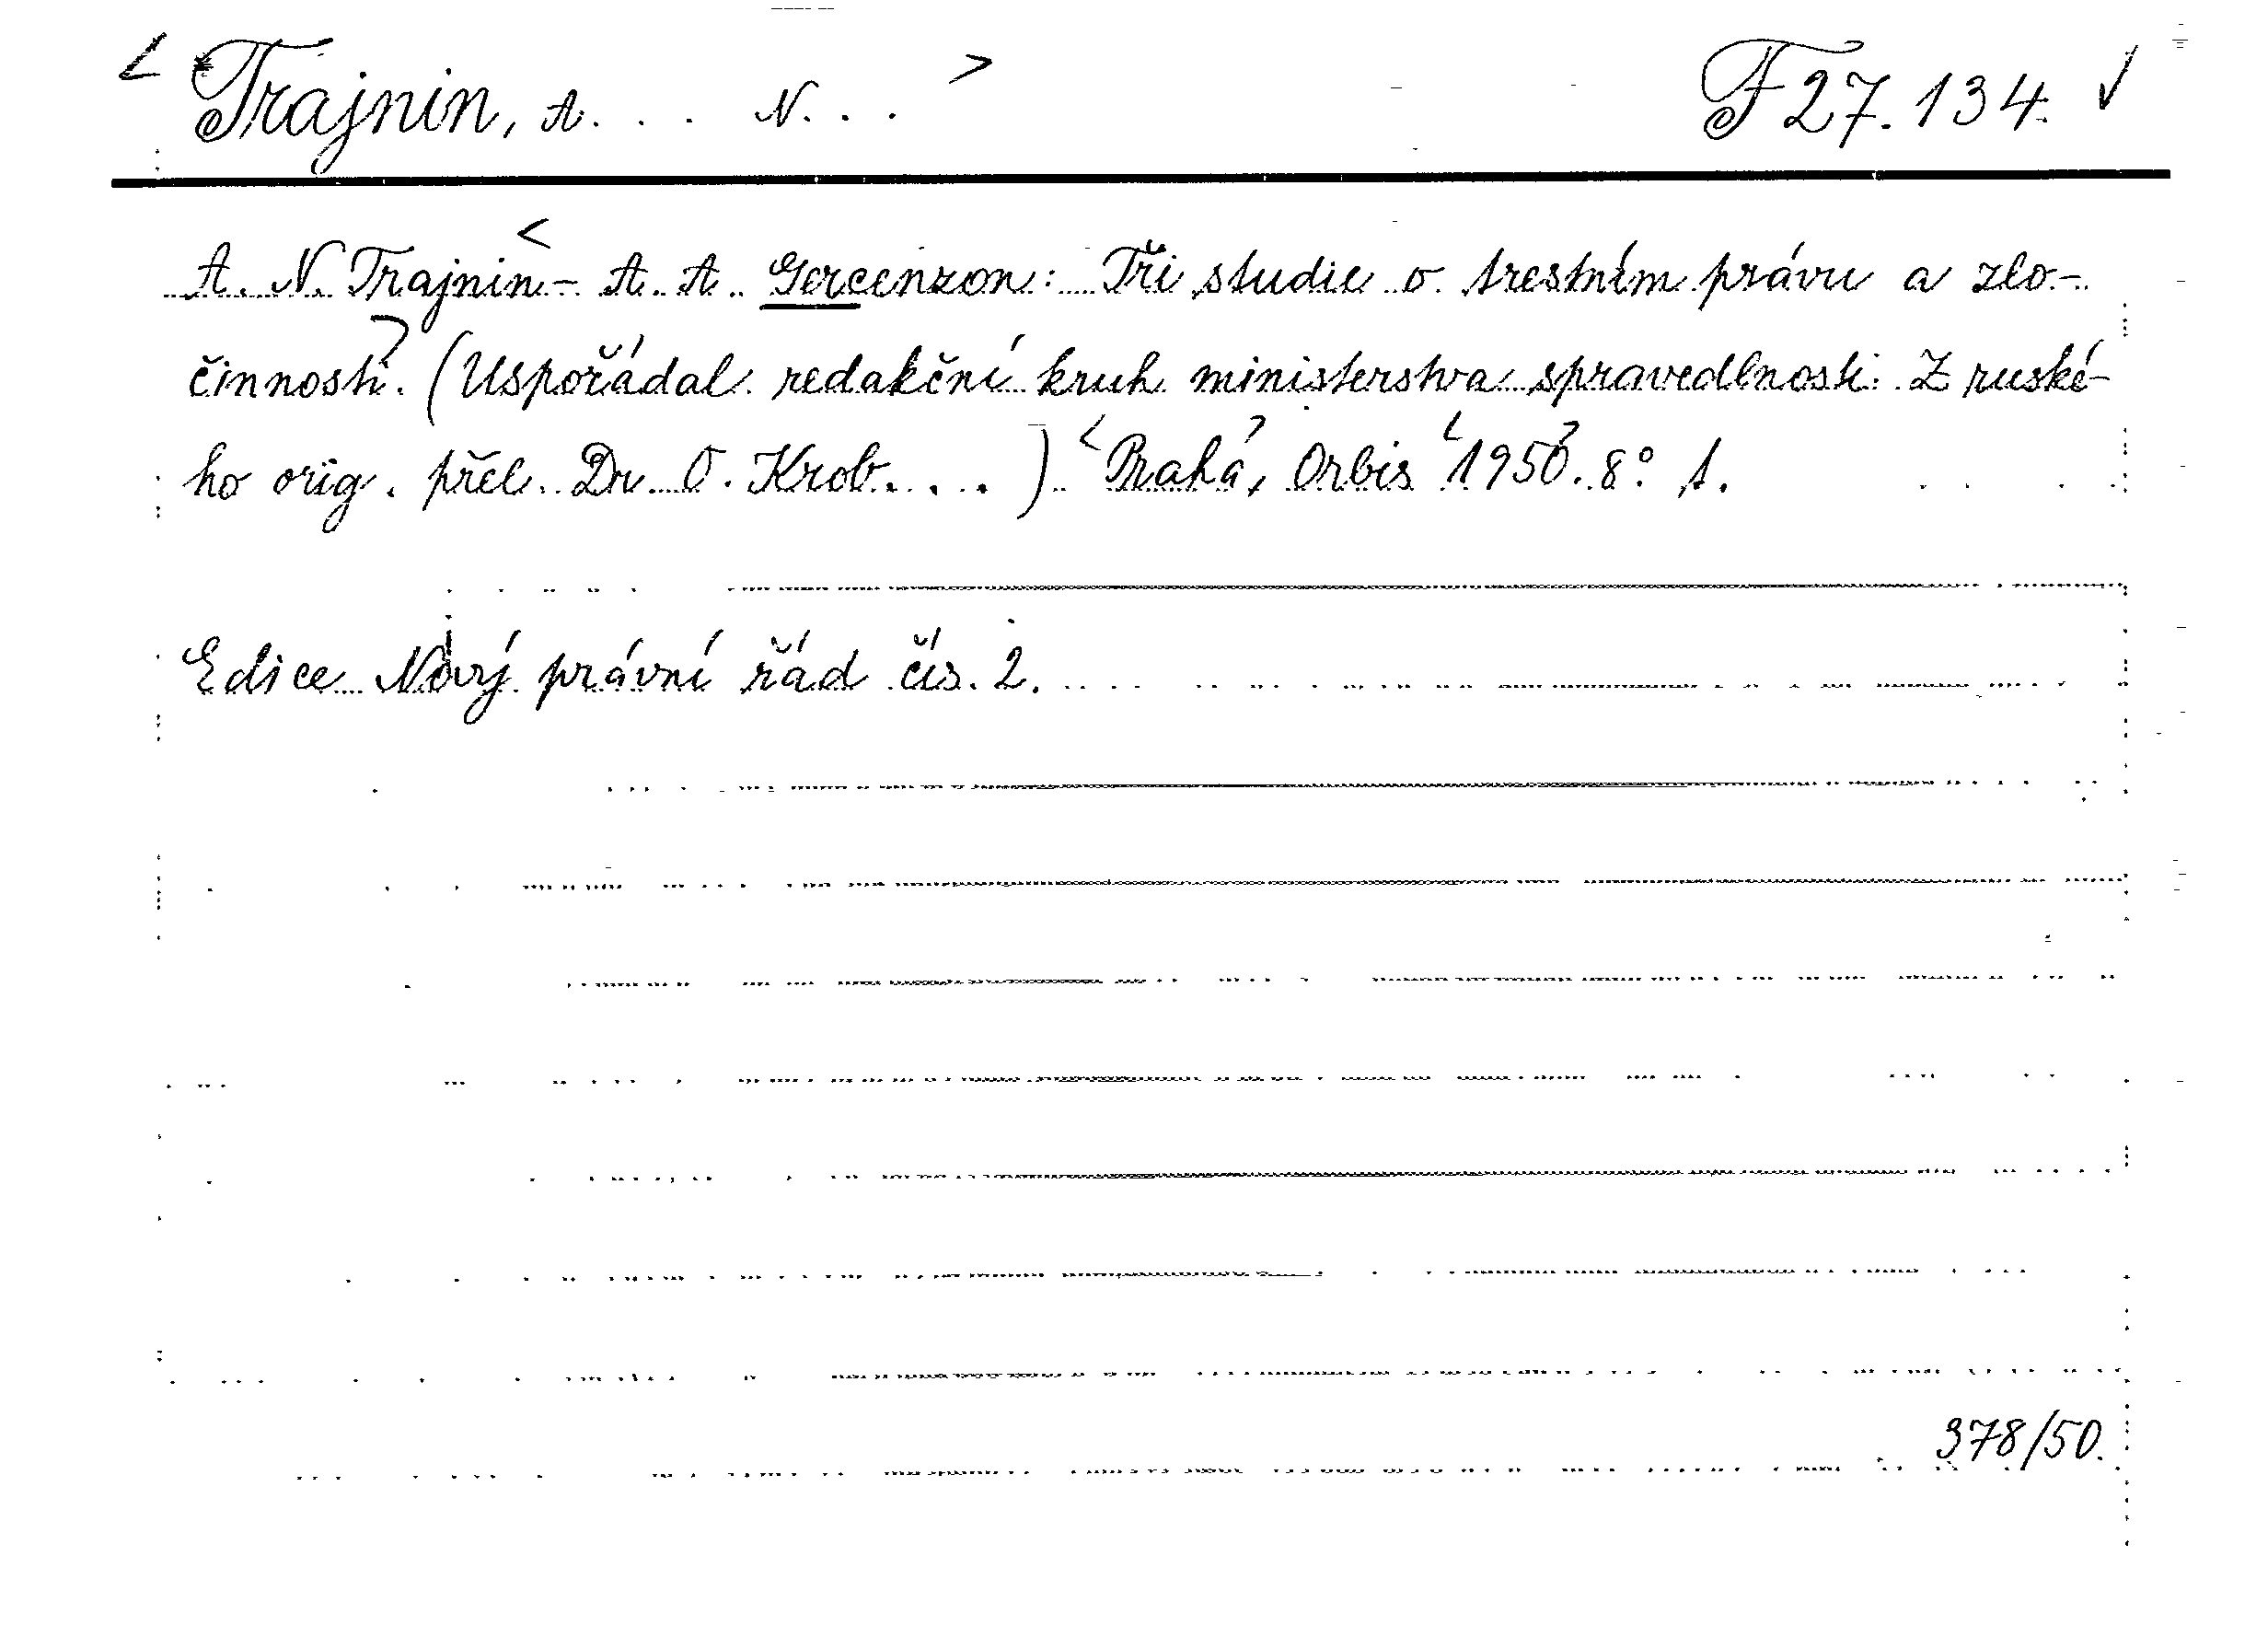 < Trajnin, A... N... > F 27.134. ✓
A. N. Trajnin - A. A. Gercenzon: Tři studie o trestním právu a zlo-
činnosti. (Uspořádal redakční kruh ministerstva spravedlnosti. Z ruské-
ho orig. přel. Dr O. Krob....) <Praha>, Orbis <1950>. 8° 1.
Edice Nový právní řád čís. 2.
378/50.